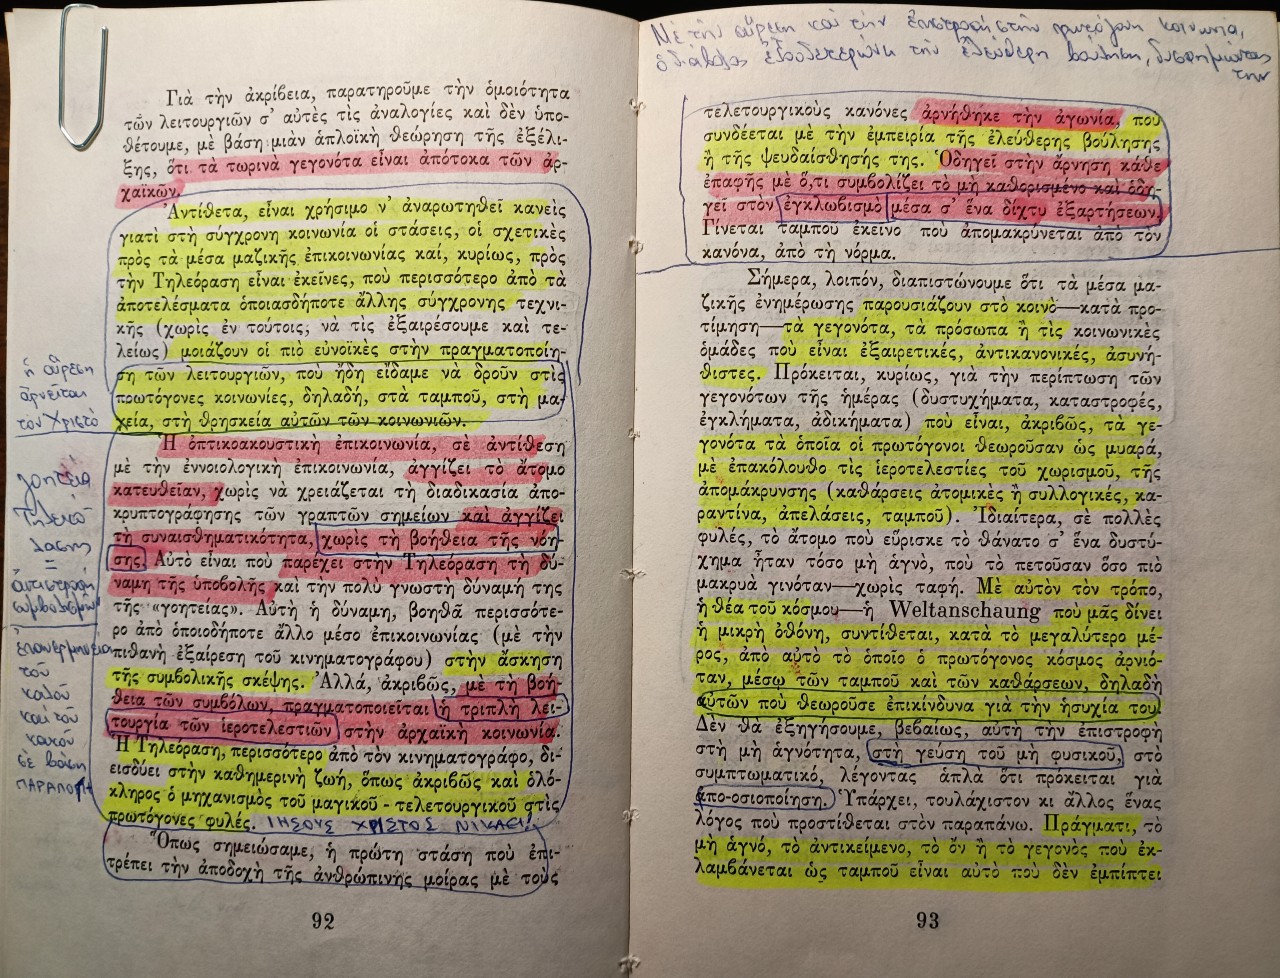 Γιὰ τὴν ἀκρίβεια, παρατηροῦμε τὴν ὁμοιότητα
τῶν λειτουργιῶν σ' αὐτὲς τὶς ἀναλογίες καὶ δὲν ὑπο-
θέτουμε, μὲ βάση μιὰν ἁπλοϊκὴ θεώρηση τῆς ἐξέλι-
ξης, ὅτι τὰ τωρινὰ γεγονότα εἶναι ἀπότοκα τῶν ἀρ-
χαϊκῶν.
Ἀντίθετα, εἶναι χρήσιμο ν' ἀναρωτηθεῖ κανεὶς
γιατὶ στὴ σύγχρονη κοινωνία οἱ στάσεις, οἱ σχετικὲς
πρὸς τὰ μέσα μαζικῆς ἐπικοινωνίας καί, κυρίως, πρὸς
τὴν Τηλεόραση εἶναι ἐκεῖνες, ποὺ περισσότερο ἀπὸ τὰ
ἀποτελέσματα ὁποιασδήποτε ἄλλης σύγχρονης τεχνι-
κῆς (χωρὶς ἐν τούτοις, νὰ τὶς ἐξαιρέσουμε καὶ τε-
λείως) μοιάζουν οἱ πιὸ εὐνοϊκὲς στὴν πραγματοποίη-
ση τῶν λειτουργιῶν, ποὺ ἤδη εἴδαμε νὰ δροῦν στὶς
πρωτόγονες κοινωνίες, δηλαδή, στὰ ταμπού, στὴ μα-
γεία, στὴ θρησκεία αὐτῶν τῶν κοινωνιῶν.
Ἡ ὀπτικοακουστικὴ ἐπικοινωνία, σὲ ἀντίθεση
μὲ τὴν ἐννοιολογικὴ ἐπικοινωνία, ἀγγίζει τὸ ἄτομο
κατευθεῖαν, χωρὶς νὰ χρειάζεται τὴ διαδικασία ἀπο-
κρυπτογράφησης τῶν γραπτῶν σημείων καὶ ἀγγίζει
τὴ συναισθηματικότητα, χωρὶς τὴ βοήθεια τῆς νόη-
σης. Αὐτὸ εἶναι ποὺ παρέχει στὴν Τηλεόραση τὴ δύ-
ναμη τῆς ὑποβολῆς καὶ τὴν πολὺ γνωστὴ δύναμή της
τῆς «γοητείας». Αὐτὴ ἡ δύναμη, βοηθᾶ περισσότε-
ρο ἀπὸ ὁποιοδήποτε ἄλλο μέσο ἐπικοινωνίας (μὲ τὴν
πιθανὴ ἐξαίρεση τοῦ κινηματογράφου) στὴν ἄσκηση
τῆς συμβολικῆς σκέψης. Ἀλλά, ἀκριβῶς, μὲ τὴ βοή-
θεια τῶν συμβόλων, πραγματοποιεῖται ἡ τριπλὴ λει-
τουργία τῶν ἱεροτελεστιῶν στὴν ἀρχαϊκὴ κοινωνία.
Ἡ Τηλεόραση, περισσότερο ἀπὸ τὸν κινηματογράφο, δι-
εισδύει στὴν καθημερινὴ ζωή, ὅπως ἀκριβῶς καὶ ὁλό-
κληρος ὁ μηχανισμὸς τοῦ μαγικοῦ - τελετουργικοῦ στὶς
πρωτόγονες φυλές. ΙΗΣΟΥΣ ΧΡΙΣΤΟΣ ΝΙΚΑΕΙ!
Ὅπως σημειώσαμε, ἡ πρώτη στάση ποὺ ἐπι-
τρέπει τὴν ἀποδοχὴ τῆς ἀνθρώπινης μοίρας μὲ τοὺς
92
ἡ αἵρεση
ἀρνεῖται
τὸν Χριστὸ
γοητεία
Τηλεό
ρασης
=
ἀντιστροφὴ
συμβολισμῶν
ἐπανερμηνεία
τοῦ
καλοῦ
καὶ τοῦ
κακοῦ
σὲ βάση
Μὲ τὴν αἵρεση καὶ τὴν ἐπιστροφὴ στὴν πρωτόγονη κοινωνία,
ὁ διάβολος ἐξουδετερώνει τὴν ἐλεύθερη βούληση, δυσφημώντας
την
τελετουργικοὺς κανόνες ἀρνήθηκε τὴν ἀγωνία, ποὺ
συνδέεται μὲ τὴν ἐμπειρία τῆς ἐλεύθερης βούλησης
ἢ τῆς ψευδαίσθησής της. Ὁδηγεῖ στὴν ἄρνηση κάθε
ἐπαφῆς μὲ ὅ,τι συμβολίζει τὸ μὴ καθορισμένο καὶ ὁδη-
γεῖ στὸν ἐγκλωβισμὸ μέσα σ' ἕνα δίχτυ ἐξαρτήσεων.
Γίνεται ταμποὺ ἐκεῖνο ποὺ ἀπομακρύνεται ἀπὸ τὸν
κανόνα, ἀπὸ τὴ νόρμα.
Σήμερα, λοιπόν, διαπιστώνουμε ὅτι τὰ μέσα μα-
ζικῆς ἐνημέρωσης παρουσιάζουν στὸ κοινὸ—κατὰ προ-
τίμηση—τὰ γεγονότα, τὰ πρόσωπα ἢ τὶς κοινωνικὲς
ὁμάδες ποὺ εἶναι ἐξαιρετικές, ἀντικανονικές, ἀσυνή-
θιστες. Πρόκειται, κυρίως, γιὰ τὴν περίπτωση τῶν
γεγονότων τῆς ἡμέρας (δυστυχήματα, καταστροφές,
ἐγκλήματα, ἀδικήματα) ποὺ εἶναι, ἀκριβῶς, τὰ γε-
γονότα τὰ ὁποῖα οἱ πρωτόγονοι θεωροῦσαν ὡς μυαρά,
μὲ ἐπακόλουθο τὶς ἱεροτελεστίες τοῦ χωρισμοῦ, τῆς
ἀπομάκρυνσης (καθάρσεις ἀτομικὲς ἢ συλλογικές, κα-
ραντίνα, ἀπελάσεις, ταμπού). Ἰδιαίτερα, σὲ πολλὲς
φυλές, τὸ ἄτομο ποὺ εὕρισκε τὸ θάνατο σ' ἕνα δυστύ-
χημα ἦταν τόσο μὴ ἁγνό, ποὺ τὸ πετοῦσαν ὅσο πιὸ
μακρυὰ γινόταν—χωρὶς ταφή. Μὲ αὐτὸν τὸν τρόπο,
ἡ θέα τοῦ κόσμου—ἡ Weltanschaung ποὺ μᾶς δίνει
ἡ μικρὴ ὀθόνη, συντίθεται, κατὰ τὸ μεγαλύτερο μέ-
ρος, ἀπὸ αὐτὸ τὸ ὁποῖο ὁ πρωτόγονος κόσμος ἀρνιό-
ταν, μέσῳ τῶν ταμποὺ καὶ τῶν καθάρσεων, δηλαδὴ
αὐτῶν ποὺ θεωροῦσε ἐπικίνδυνα γιὰ τὴν ἡσυχία του.
Δὲν θὰ ἐξηγήσουμε, βεβαίως, αὐτὴ τὴν ἐπιστροφὴ
στὴ μὴ ἁγνότητα, στὴ γεύση τοῦ μὴ φυσικοῦ, στὸ
συμπτωματικό, λέγοντας ἁπλὰ ὅτι πρόκειται γιὰ
ἀπο-οσιοποίηση. Ὑπάρχει, τουλάχιστον κι ἄλλος ἕνας
λόγος ποὺ προστίθεται στὸν παραπάνω. Πράγματι, τὸ
μὴ ἁγνό, τὸ ἀντικείμενο, τὸ ὂν ἢ τὸ γεγονὸς ποὺ ἐκ-
λαμβάνεται ὡς ταμποὺ εἶναι αὐτὸ ποὺ δὲν ἐμπίπτει
93